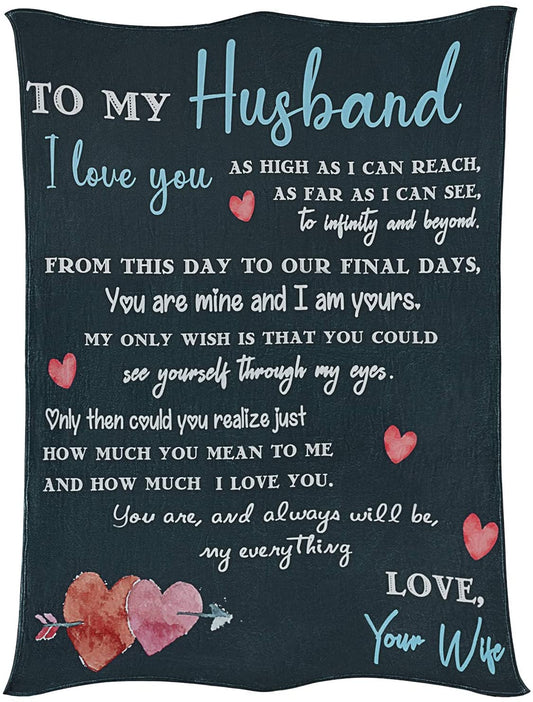 TO MY Husband
I love you
AS HIGH AS I CAN REACH,
AS FAR AS I CAN SEE,
to infinity and beyond.
FROM THIS DAY TO OUR FINAL DAYS,
You are mine and I am yours.
MY ONLY WISH IS THAT YOU COULD
see yourself through my eyes.
Only then could you realize just
HOW MUCH YOU MEAN TO ME
AND HOW MUCH I LOVE YOU.
You are, and always will be,
my everything
LOVE,
Your Wife